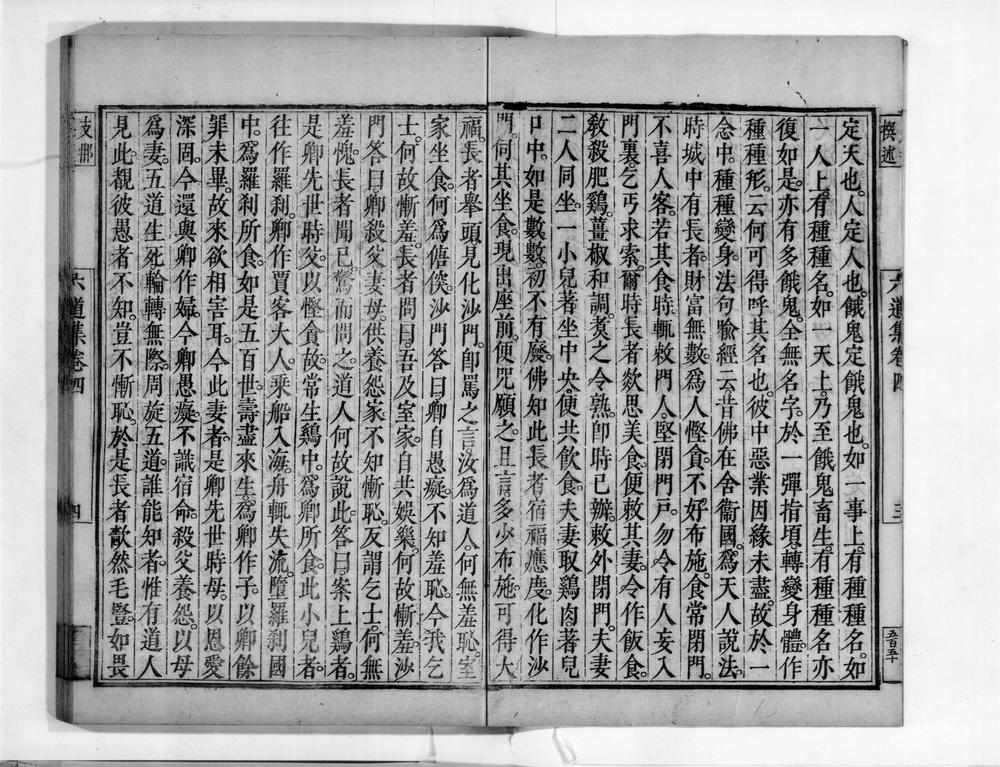 撰述
六道集卷四
三
五百五十
定天也。人定人也。餓鬼定餓鬼也。如一事上。有種種名。如
一人上。有種種名。如一天上。乃至餓鬼畜生。有種種名亦
復如是。亦有多餓鬼。全無名字。於一彈指頃。轉變身體。作
種種形。云何可得呼其名也。彼中惡業因緣未盡。故於一
念中。種種變身。法句喻經云。昔佛在舍衞國。爲天人說法。
時城中有長者。財富無數。爲人慳貪。不好布施。食常閉門。
不喜人客。若其食時。輒敕門人。堅閉門戶。勿令有人妄入
門裏。乞丐求索。爾時長者。欻思美食。便敕其妻。令作飯食。
敎殺肥鷄。薑椒和調。煮之令熟。卽時已辦。敕外閉門。夫妻
二人同坐。一小兒著坐中央。便共飲食。夫妻取鷄肉著兒
口中。如是數數。初不有廢。佛知此長者。宿福應度。化作沙
門。伺其坐食。現出座前。便咒願之。且言多少布施。可得大
福。長者舉頭。見化沙門。卽罵之言。汝爲道人。何無羞恥。室
家坐食。何爲僖㒓。沙門答曰。卿自愚癡。不知羞恥。今我乞
士。何故慚羞。長者問曰。吾及室家。自共娛樂。何故慚羞。沙
門答曰。卿殺父妻母。供養怨家。不知慚恥。反謂乞士。何無
羞愧。長者聞已。驚而問之。道人何故說此。答曰。案上鷄者。
是卿先世時父。以慳貪故。常生鷄中。爲卿所食。此小兒者。
往作羅刹。卿作賈客大人。乘船入海。舟輒失流。墮羅刹國
中。爲羅刹所食。如是五百世。壽盡來生。爲卿作子。以卿餘
罪未畢。故來欲相害耳。今此妻者。是卿先世時母。以恩愛
深固。今還與卿作婦。今卿愚癡。不識宿命。殺父養怨。以母
爲妻。五道生死。輪轉無際。周旋五道。誰能知者。惟有道人
見此。覩彼愚者不知。豈不慚恥。於是長者歘然毛豎。如畏
支那
六道集卷四
四